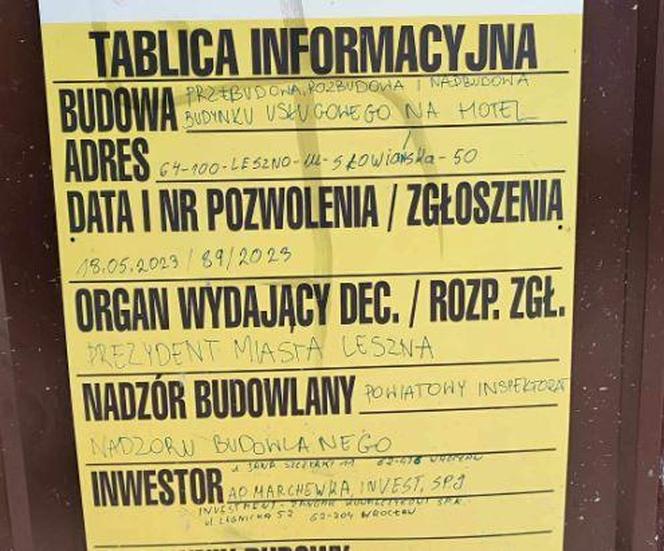 TABLICA INFORMACYJNA
BUDOWA PRZEBUDOWA, ROZBUDOWA I NADBUDOWA
BUDYNKU USŁUGOWEGO NA HOTEL
ADRES 64-100-LESZNO-ul-SŁOWIAŃSKA-50
DATA I NR POZWOLENIA / ZGŁOSZENIA
18.05.2023 / 89/2023
ORGAN WYDAJĄCY DEC. / ROZP. ZGŁ.
PREZYDENT MIASTA LESZNA
NADZÓR BUDOWLANY POWIATOWY INSPEKTORAT
NADZORU BUDOWLANEGO
INWESTOR AD MARCHEWKA, INVEST, SPJ
ul LEGNICKA 52 62-204 WROCŁAW
BUDOWY